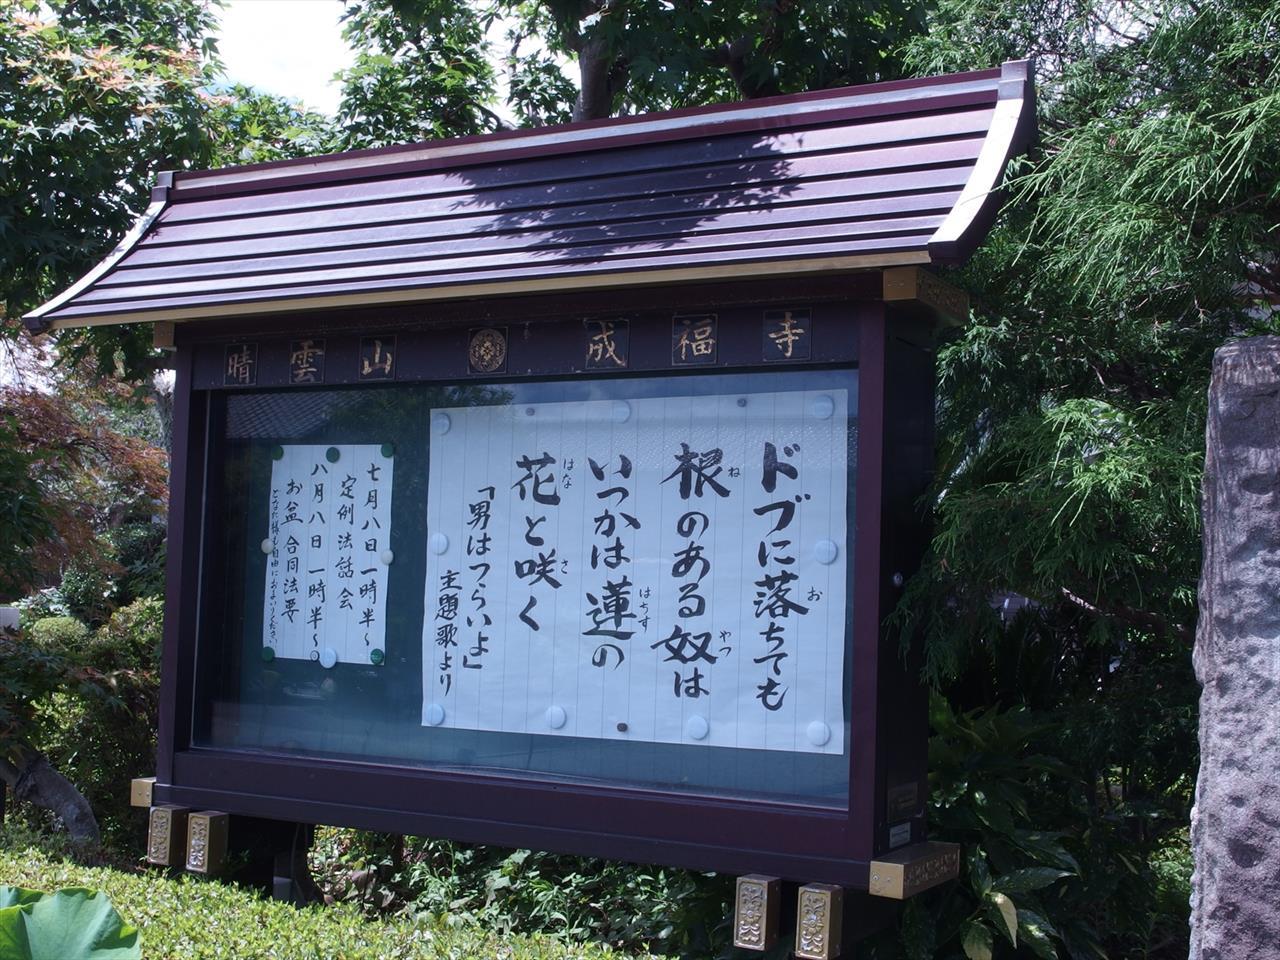 晴雲山 成福寺
ドブに落ちても
根のある奴は
いつかは蓮の
花と咲く
「男はつらいよ」
主題歌より
お
ね
やつ
はちす
はな
さ
七月八日一時半～
定例法話会
八月八日一時半～
お盆合同法要
どなた様も自由におまいりください